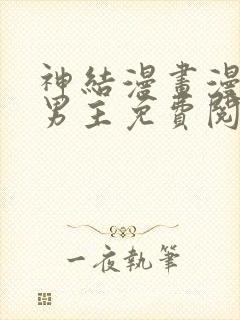 神結漫畫漫
男主免費閱
一夜執筆